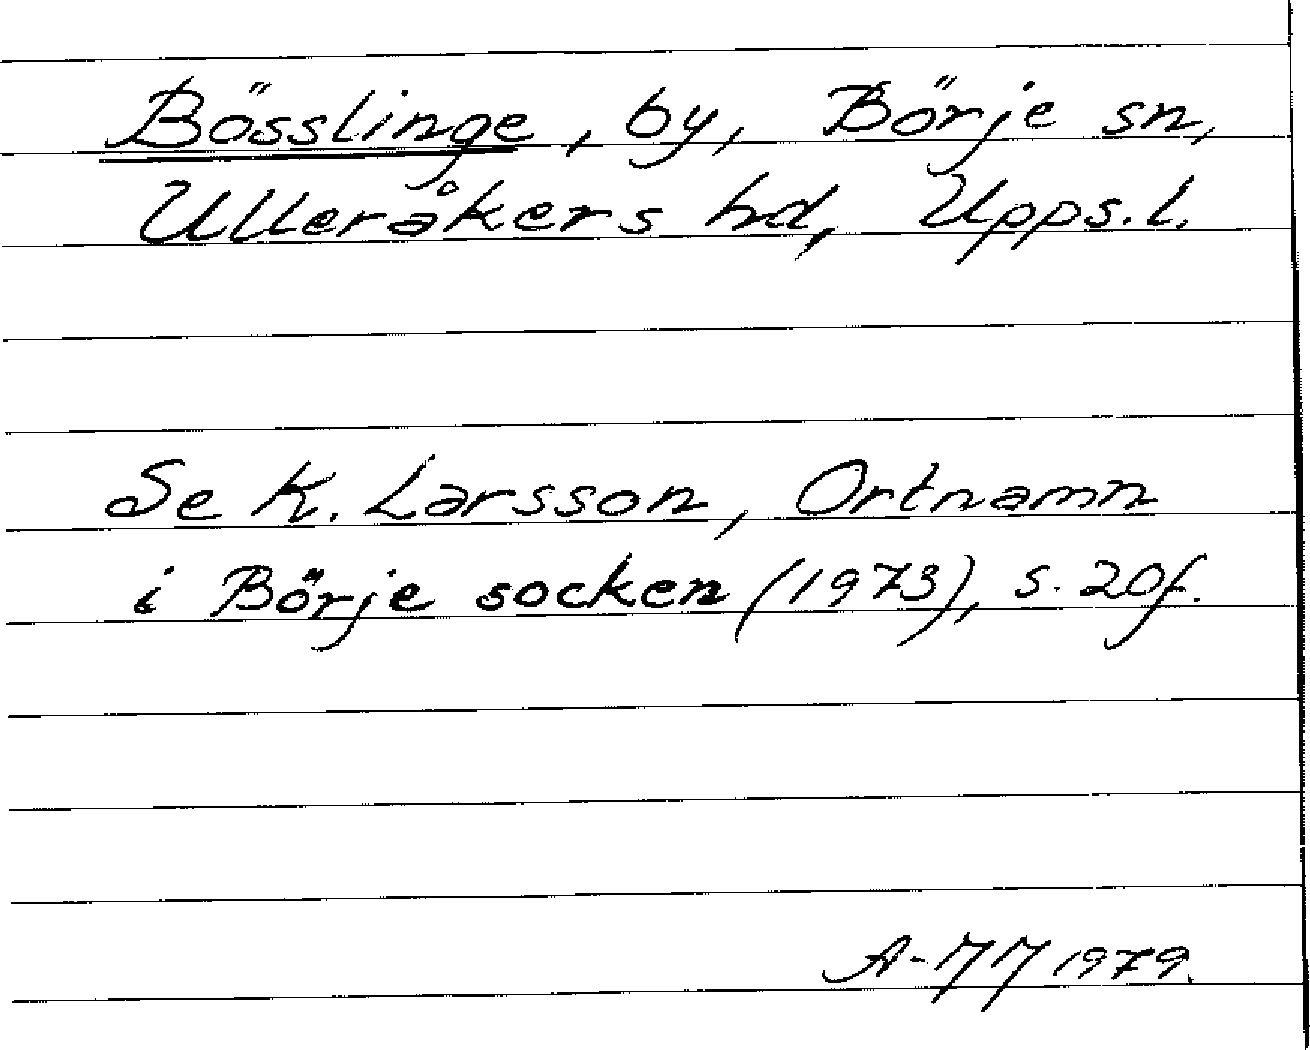 Bösslinge, by, Börje sn,
Ulleråkers hd, Upps.l.
Se K. Larsson, Ortnamn
i Börje socken (1973), s. 20f.
1979.